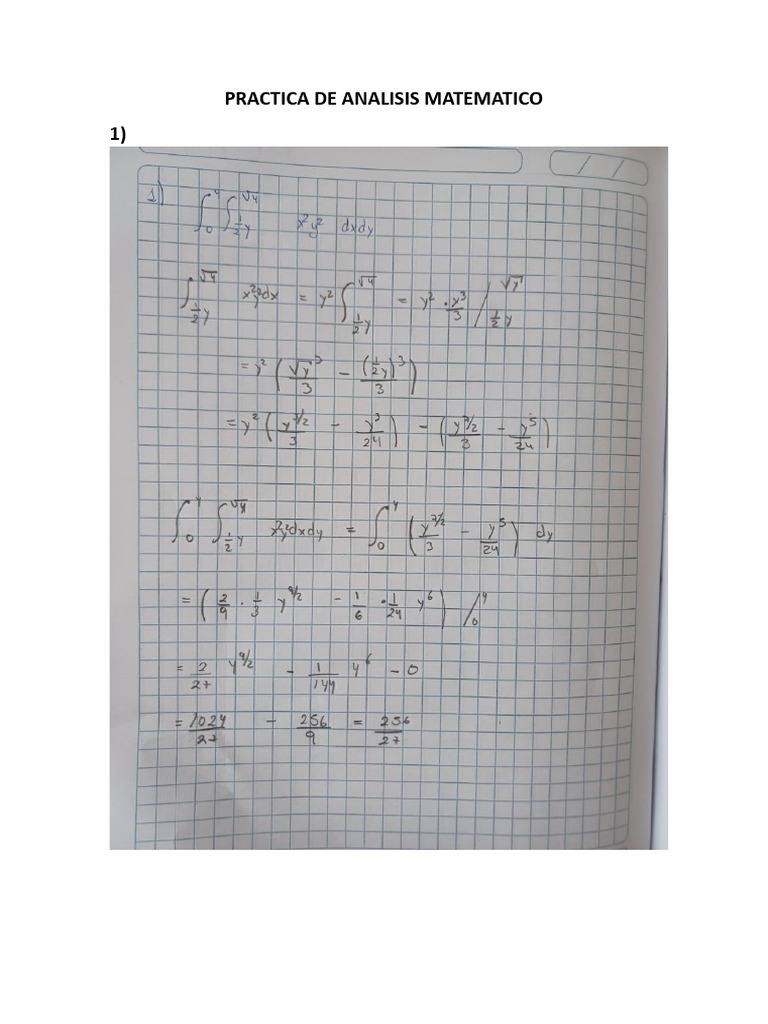 PRACTICA DE ANALISIS MATEMATICO
1)
1) ∫₀⁴ ∫_{½y}^{√y} x²y² dxdy
∫_{½y}^{√y} x²y²dx = y² ∫_{½y}^{√y} = y² · x³/3 / _{½y}^{√y}
= y² ( √y³/3 − (½y)³/3 )
= y² ( y^{3/2}/3 − y³/24 ) − ( y^{7/2}/3 − y⁵/24 )
∫₀⁴ ∫_{½y}^{√y} x²y²dxdy = ∫₀⁴ ( y^{7/2}/3 − y⁵/24 ) dy
= ( 2/9 · 1/3 y^{9/2} − 1/6 · 1/24 y⁶ ) /₀⁴
= 2/27 4^{9/2} − 1/144 4⁶ − 0
= 1024/27 − 256/9 = 256/27